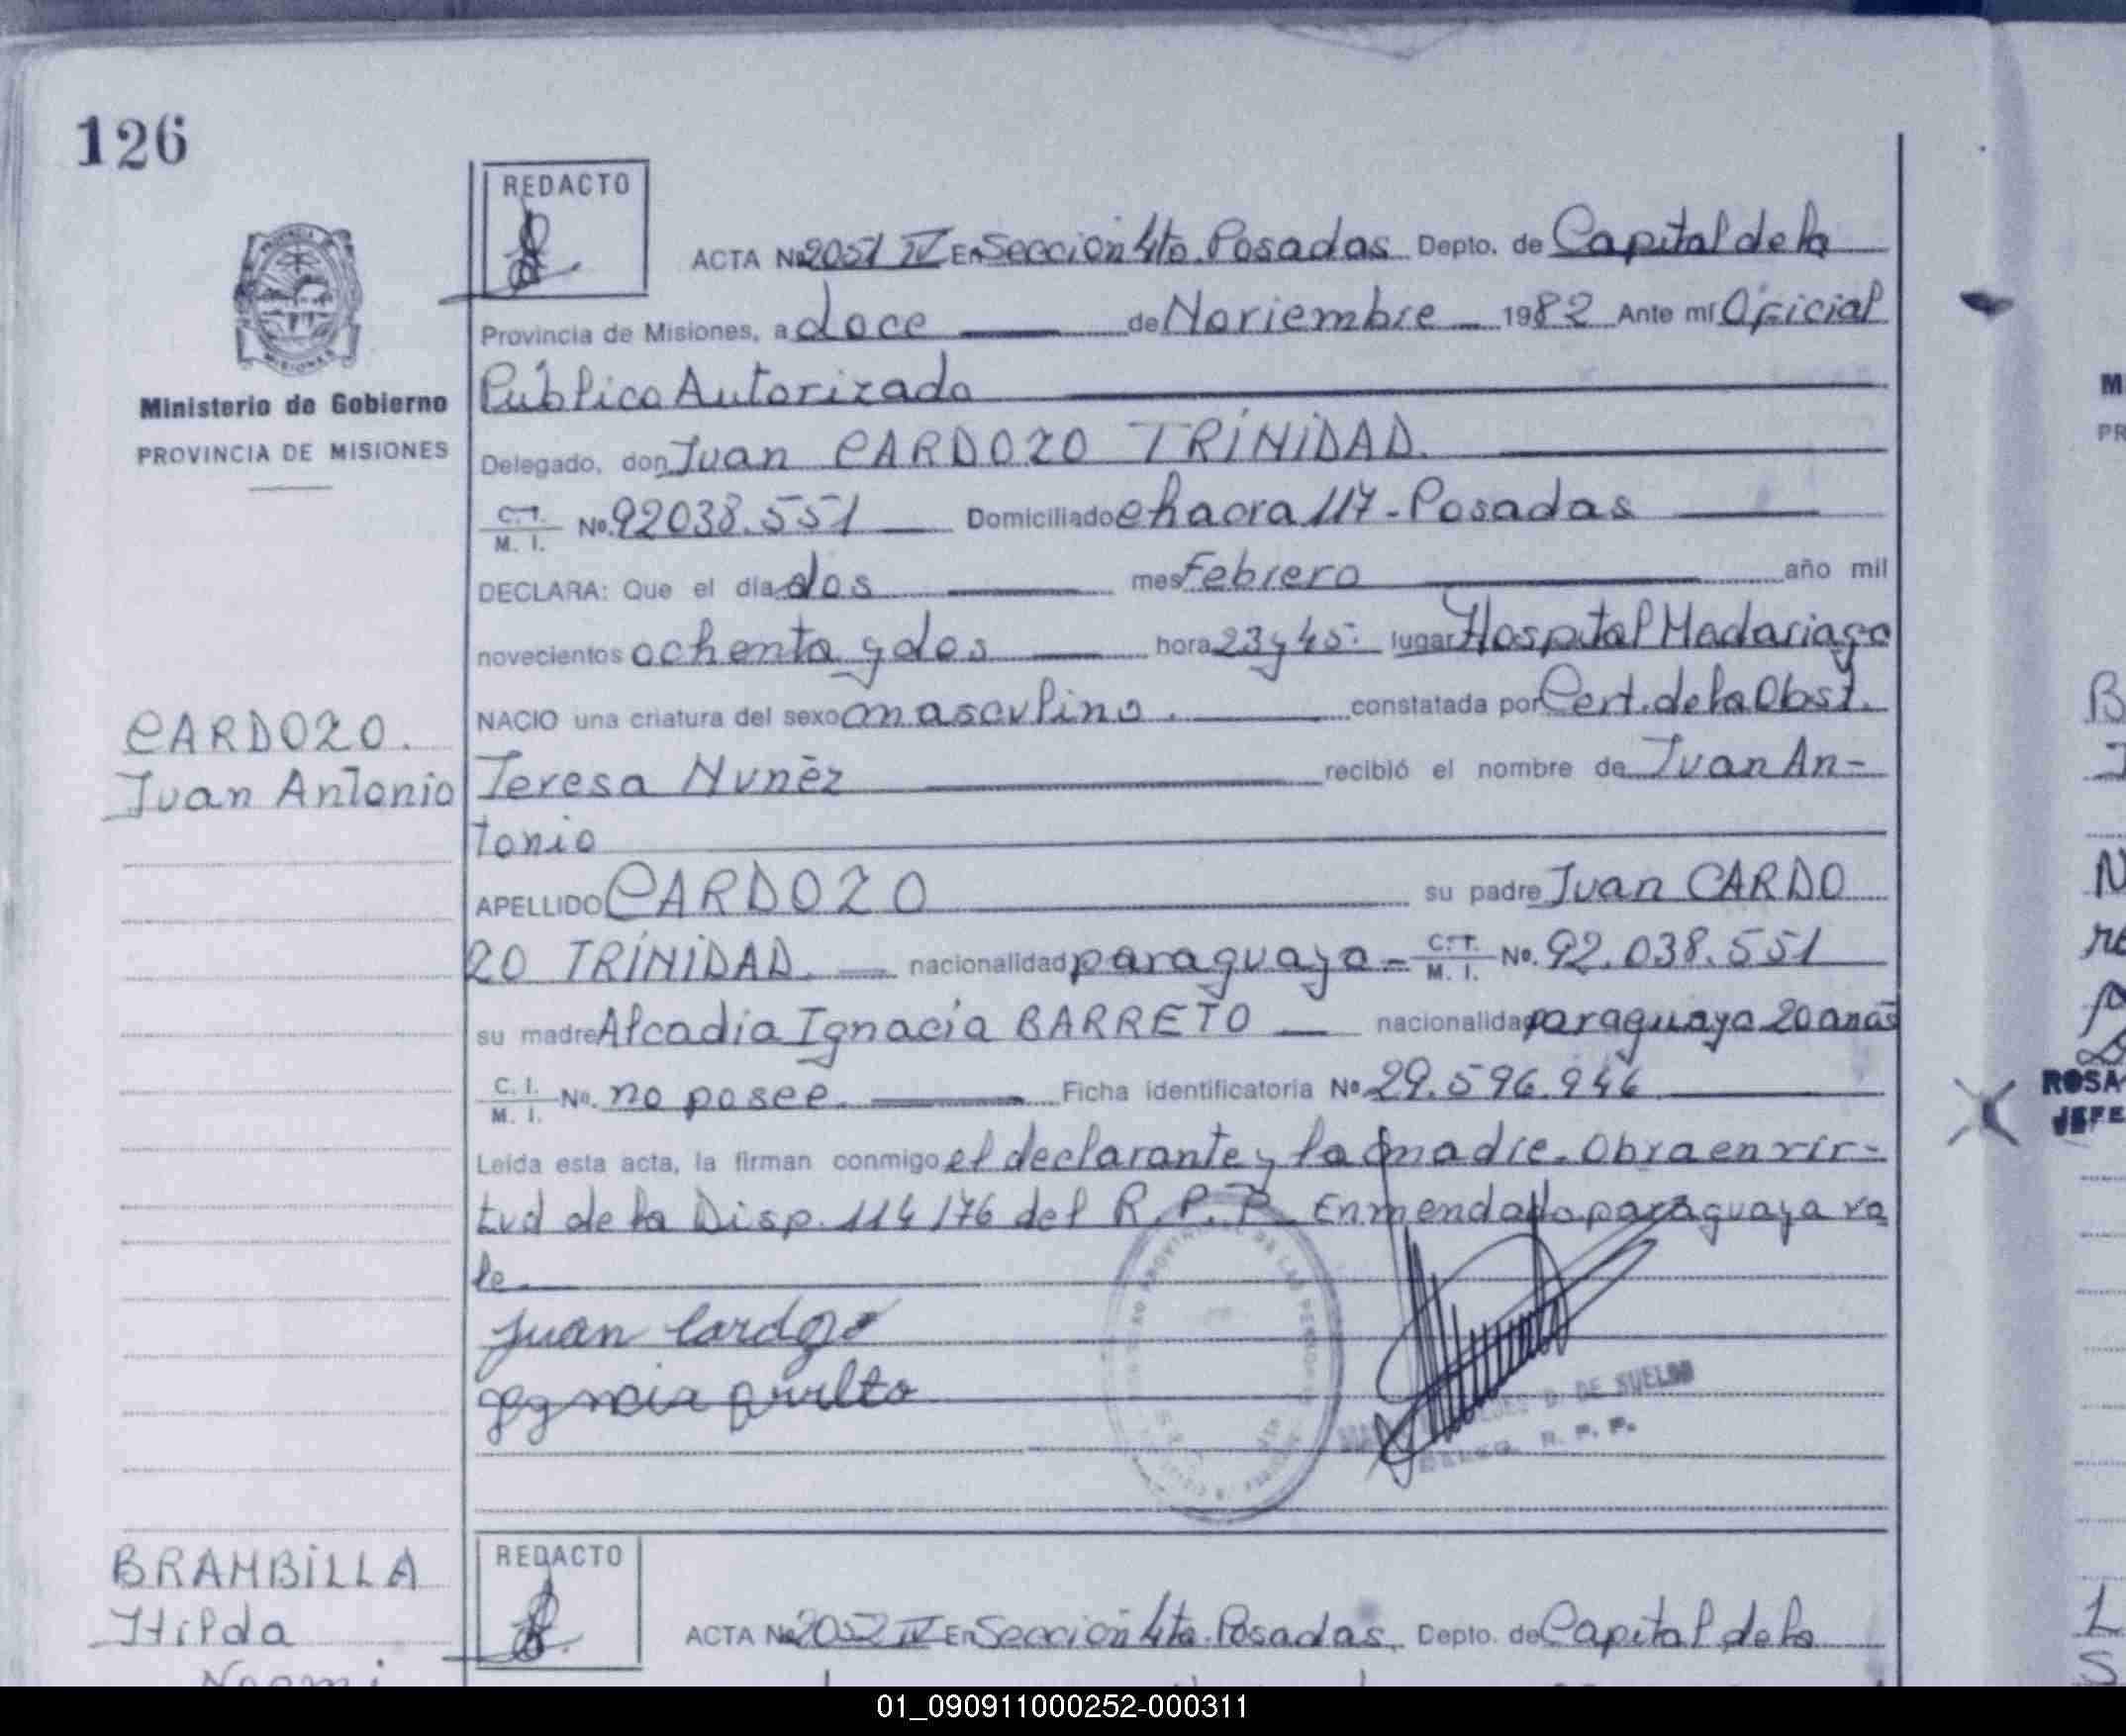 126
REDACTO
ACTA Nº 2051 IV En Sección 4ta. Posadas Depto. de Capital de la
Provincia de Misiones, a doce de Noviembre 1982 Ante mí Oficial
Público Autorizado
Ministerio de Gobierno
PROVINCIA DE MISIONES
Delegado, don Juan CARDOZO TRINIDAD.
C.I. M. I. Nº. 92038.551 Domiciliado chacra 117 - Posadas
DECLARA: Que el día dos mes Febrero año mil
novecientos ochenta y dos hora 23 y 45 lugar Hospital Madariaga
NACIO una criatura del sexo masculino. constatada por Cert. de la Obst.
CARDOZO.
Juan Antonio
Teresa Nunèz recibió el nombre de Juan An-
tonio
APELLIDO CARDOZO su padre Juan CARDO
ZO TRINIDAD. nacionalidad paraguaya - C.I. M. I. Nº. 92.038.551
su madre Alcadia Ignacia BARRETO nacionalidad paraguaya 20 anãs
C. I. M. I. Nº. no posee. Ficha identificatoria Nº 29.596.946
Leída esta acta, la firman conmigo el declarante y la madre. Obra en vir-
tud de la Disp. 114/76 del R. P. P. Enmendado paraguaya va
le
Juan Cardozo
D. DE SUELDO
R. P. P.
BRAMBILLA
Hilda
Noemi
REDACTO
ACTA Nº 2052 IV En Sección 4ta. Posadas. Depto. de Capital de la
ROSA
JEFE
01_090911000252-000311